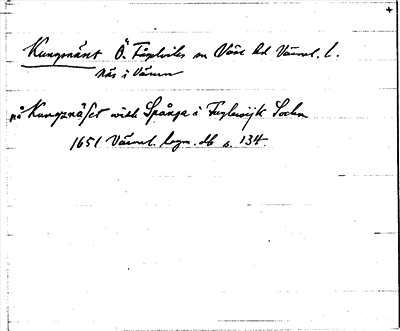 Kungsnäset Ö. Fågelviks sn Väse hd Värml. l.
näs i Vänern
på Kungznäset widh Spånga i Fuglewijk Sochn
1651 Värml. lagm. db s. 134.